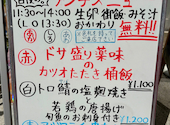 11:30~14:00 生卵 御飯 みそ汁
(LO13:30) おかわり 無料!!
赤 ドサ盛り薬味の
カツオたたき桶飯
¥1.100
白 トロ鯖の塩麹焼き
若鶏の唐揚げ
旬魚のお刺身付き
¥1.200